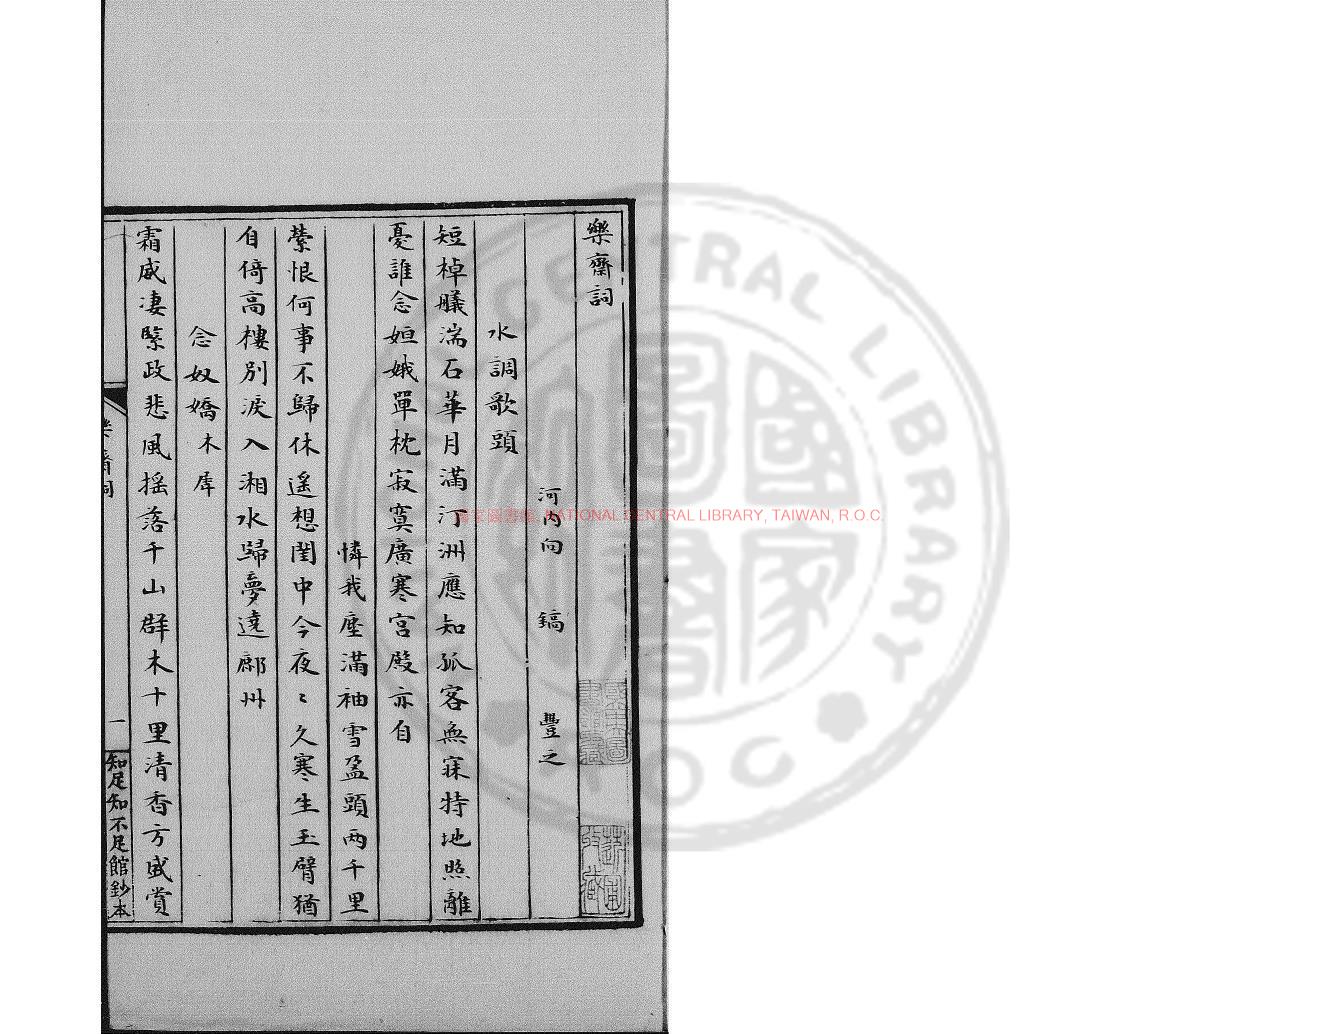 樂齋詞
河內向　鎬　豐之
水調歌頭
短棹艤湍石華月滿汀洲應知孤客無寐特地照離
憂誰念姮娥單枕寂寞廣寒宮殿亦自
憐我塵滿袖雪盈頭兩千里
縈恨何事不歸休遙想閨中今夜〻久寒生玉臂猶
自倚高樓別淚入湘水歸夢遶鄜州
念奴嬌木犀
霜威凄緊政悲風搖落千山群木十里清香方盛賞
樂齋詞
一
知足知不足館鈔本
NATIONAL CENTRAL LIBRARY, TAIWAN, R.O.C.
CENTRAL LIBRARY
R O C